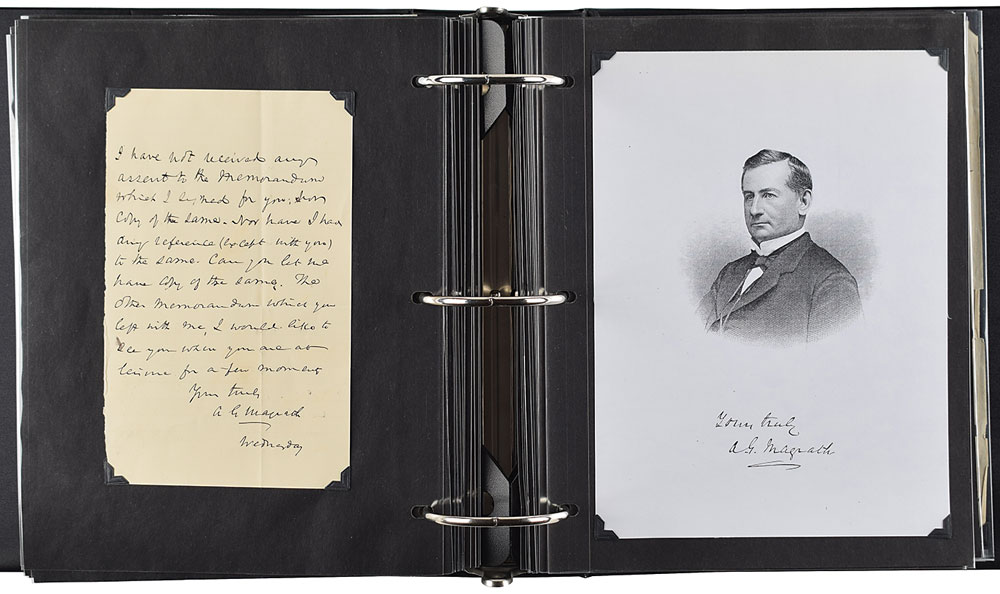 I have not received any
assent to the Memorandum
which I signed for you, nor
Copy of the same. Nor have I had
any reference (except with you)
to the same. Can you let me
have Copy of the same. The
other Memorandum which you
left with me, I would like to
see you when you are at
leisure for a few moments
Yours truly
A G Magrath
Wednesday
Yours truly
A. G. Magrath